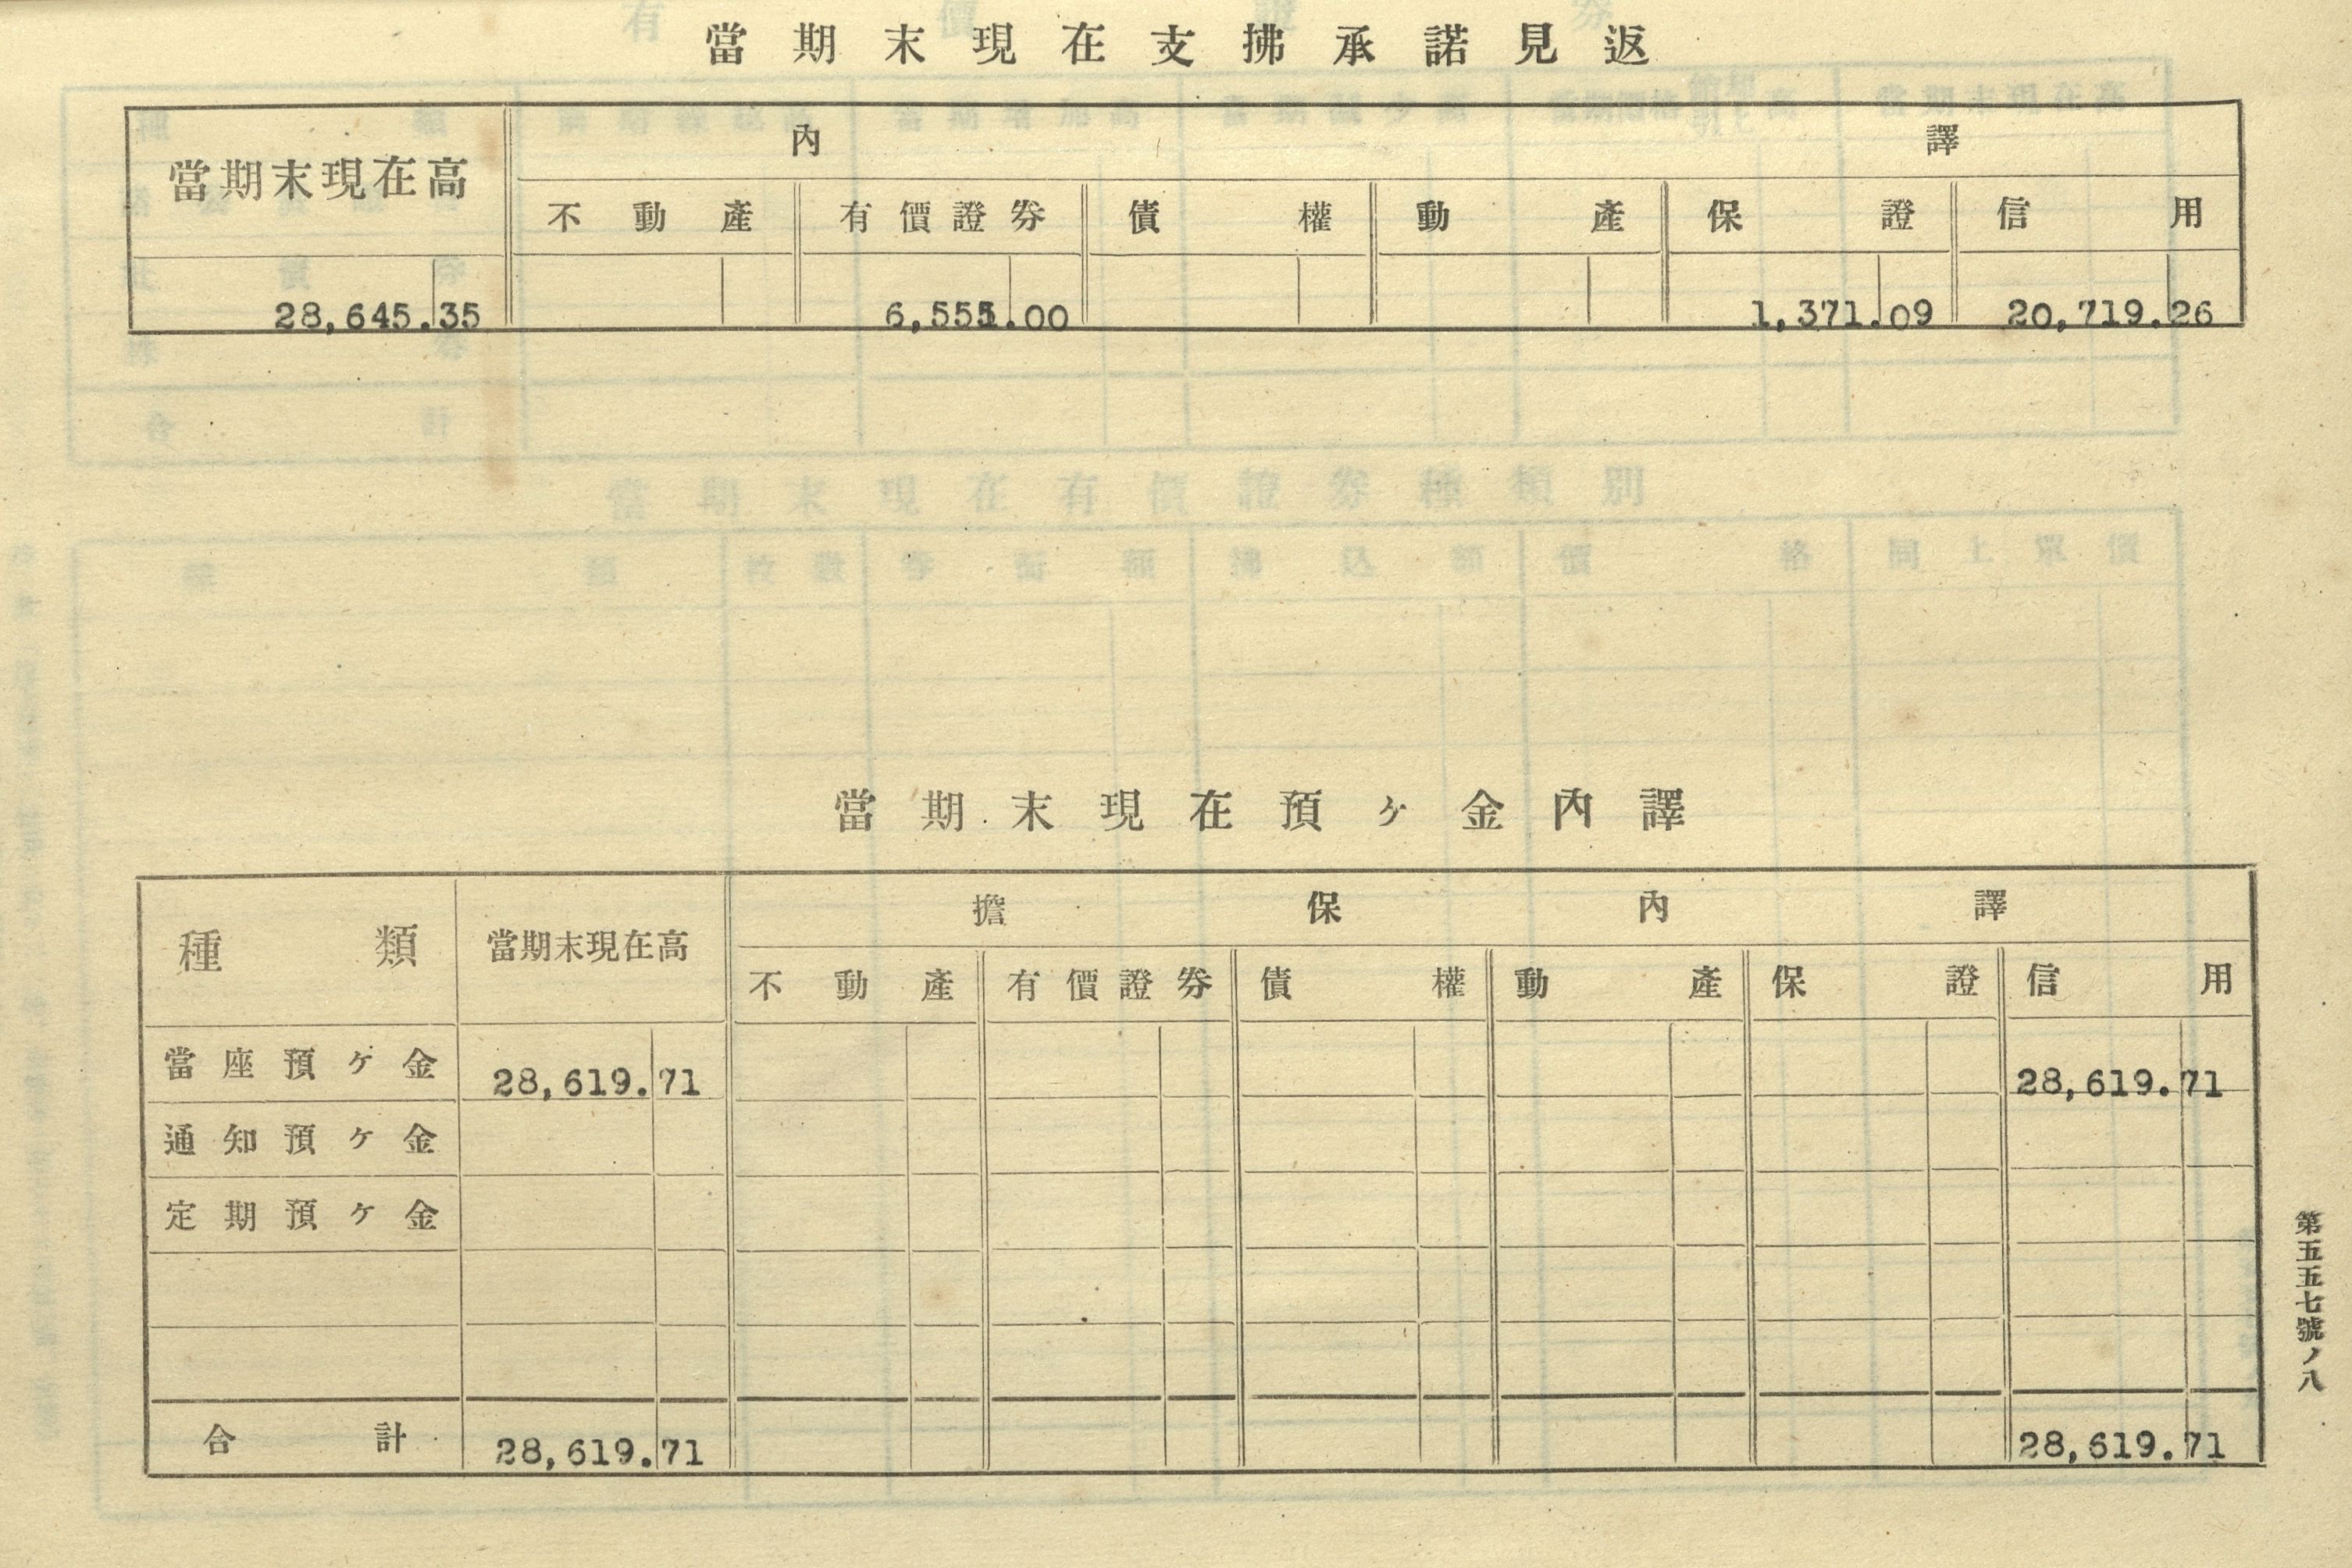 當期末現在支拂承諾見返
當期末現在高 內譯
不動產 有價證券 債權 動產 保證 信用
28,645.35 6,555.00 1,371.09 20,719.26
當期末現在預ヶ金內譯
種類 當期末現在高 擔保內譯
不動產 有價證券 債權 動產 保證 信用
當座預ヶ金 28,619.71 28,619.71
通知預ヶ金
定期預ヶ金
合計 28,619.71 28,619.71
第五五七號ノ八